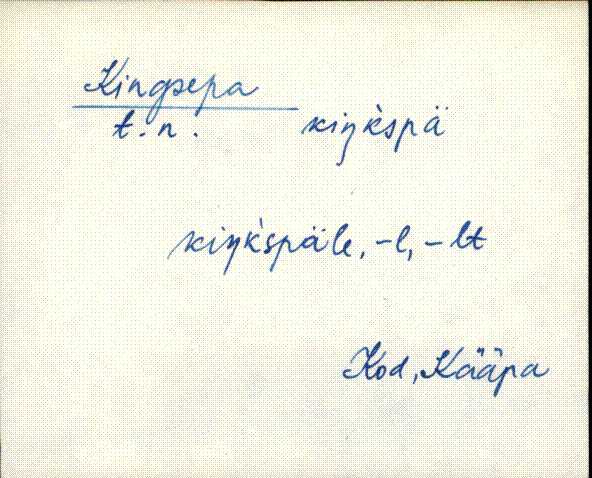 Kingsepa
t.n. kiŋk̀spä
kiŋk̀späle, -l, -lt
Kod, Kääpa